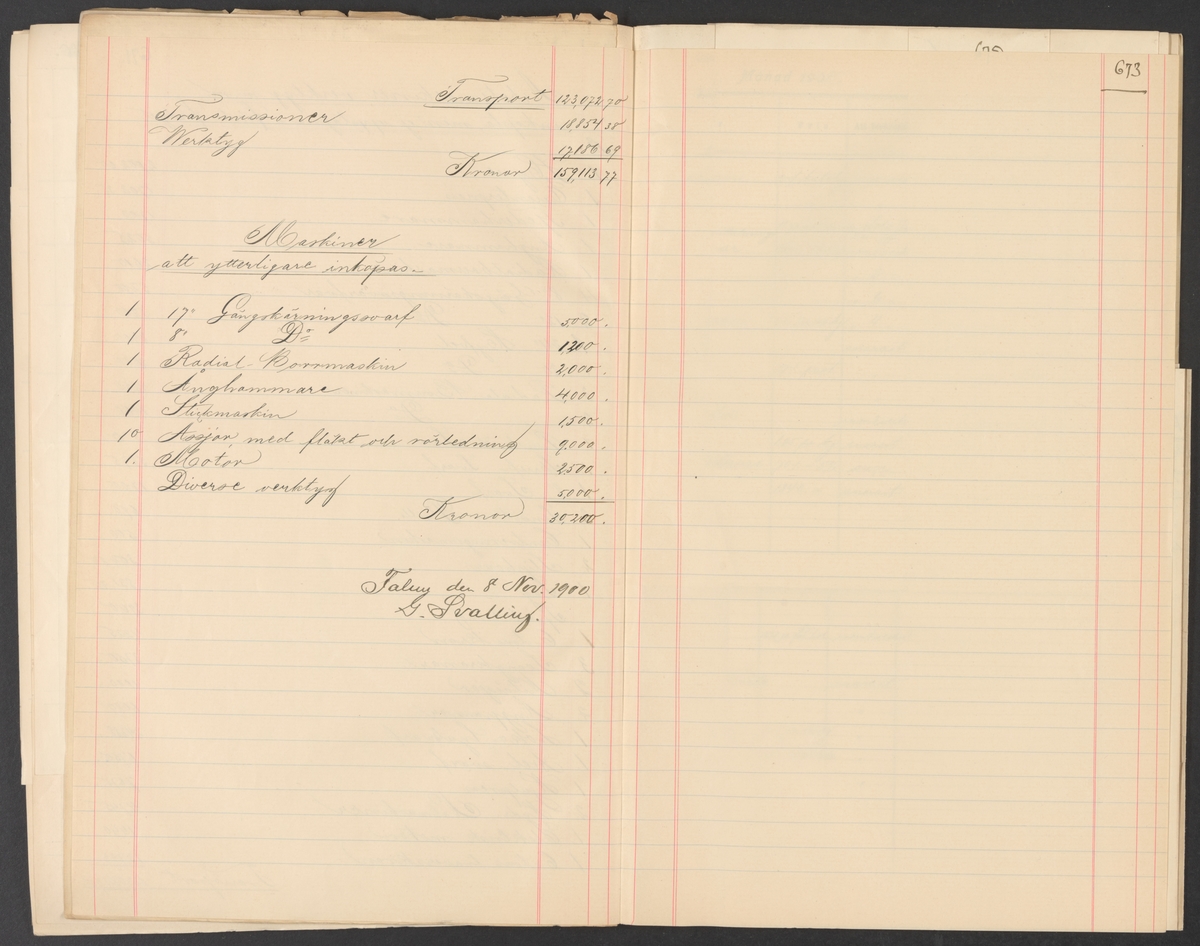 Transport 123,072 70
Transmissioner 18,854 38
Werktyg 17,186 69
Kronor 159,113 77
Maskiner
att ytterligare inköpas.-
1 17" Gängskärningssvarf 5,000.
1 8" Do 1,200.
1 Radial-Borrmaskin 2,000.
1 Ånghammare 4,000.
1 Stickmaskin 1,500.
10 Ässjor, med fläkt och rörledning 9,000.
1. Motor 2,500.
Diverse verktyg 5,000.
Kronor 30,200.
Falun den 8 Nov. 1900
G. Svalling.
673